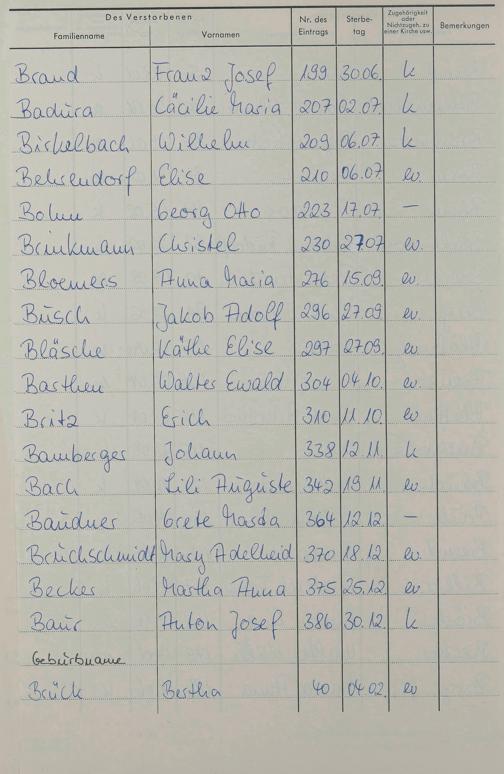 Des Verstorbenen Nr. des Eintrags Sterbetag Zugehörigkeit oder Nichtzugeh. zu einer Kirche usw. Bemerkungen
Familienname Vornamen
Brand Franz Josef 199 30.06. k
Badura Cäcilie Maria 207 02.07. k
Birkelbach Wilhelm 209 06.07. k
Behrendorf Elise 210 06.07 ev.
Bohn Georg Otto 223 17.07. —
Brinkmann Christel 230 27.07 ev.
Bloemers Anna Maria 276 15.09. ev.
Busch Jakob Adolf 296 27.09 ev.
Bläsche Käthe Elise 297 27.09. ev
Barthen Walter Ewald 304 04.10. ev.
Britz Erich 310 11.10. ev
Bamberger Johann 338 12.11. k
Bach Lili Auguste 342 19.11. ev
Baudner Grete Marda 364 12.12. —
Bruchschmidt Mary Adelheid 370 18.12 ev.
Becker Martha Anna 375 25.12 ev
Baur Anton Josef 386 30.12. k
Geburtsname
Brück Bertha 40 04.02. ev